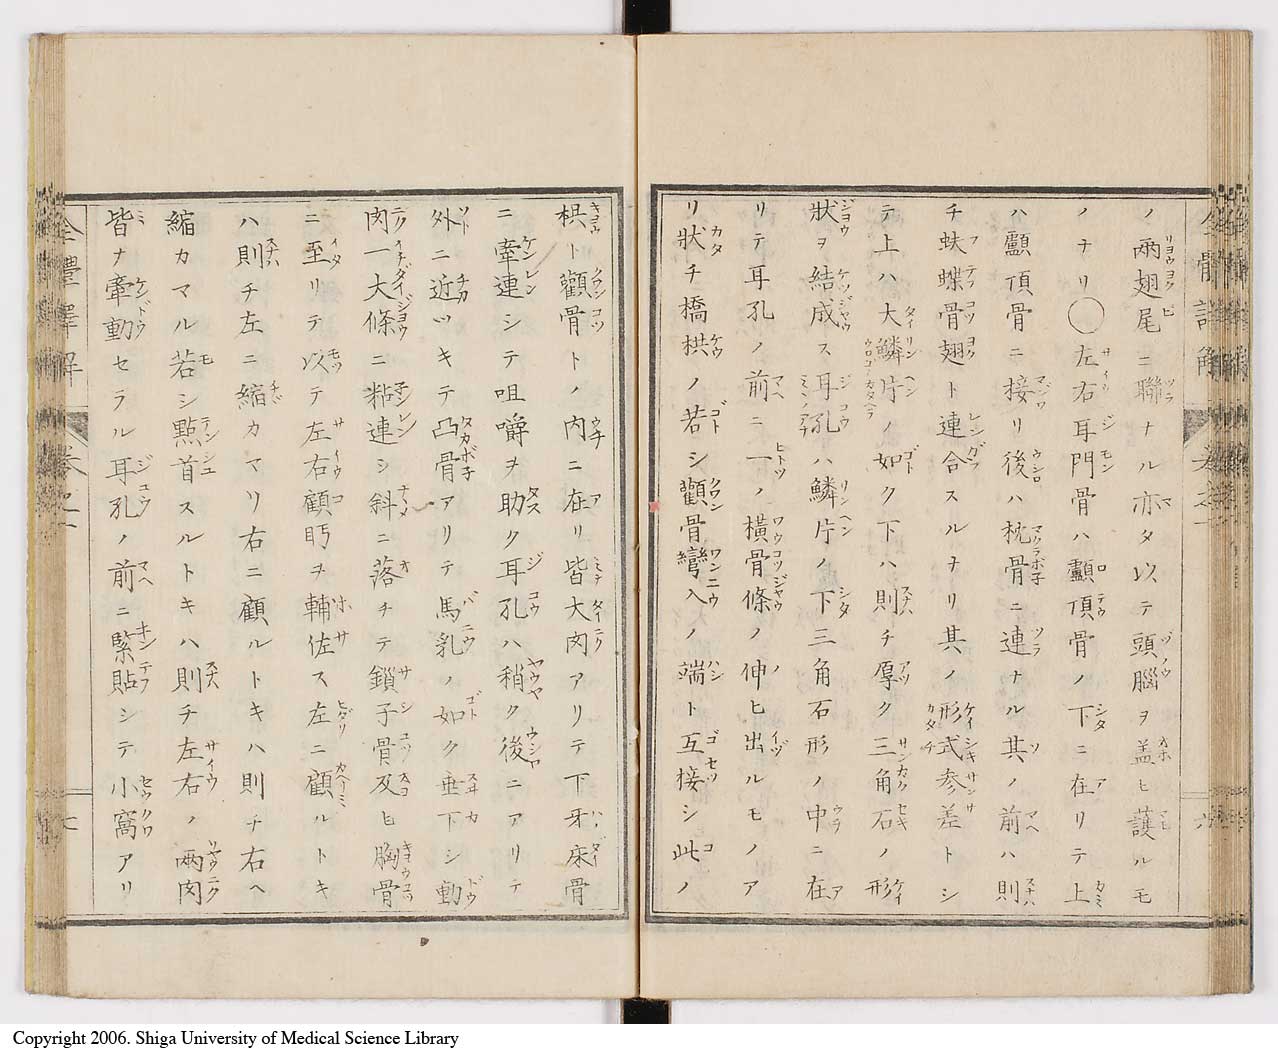 ノ兩翅尾ニ聯ナル亦タ以テ頭腦ヲ盖ヒ護ルモ
ノナリ〇左右耳門骨ハ顱頂骨ノ下ニ在リテ上
ハ顱頂骨ニ接リ後ハ枕骨ニ連ナル其ノ前ハ則
チ蚨蝶骨翅ト連合スルナリ其ノ形式參差トシ
テ上ハ大鱗片ノ如ク下ハ則チ厚ク三角石ノ形
狀ヲ結成ス耳孔ハ鱗片ノ下三角石形ノ中ニ在
リテ耳孔ノ前ニ一ノ橫骨條ノ伸ヒ出ルモノア
リ狀チ橋栱ノ若シ顴骨彎入ノ端ト互接シ此ノ
六
栱ト顴骨トノ内ニ在リ皆大肉アリテ下牙床骨
ニ牽連シテ咀嚼ヲ助ク耳孔ハ稍ク後ニアリテ
外ニ近ツキテ凸骨アリテ馬乳ノ如ク垂下シ動
肉一大條ニ粘連シ斜ニ落チテ鎖子骨及ヒ胸骨
ニ至リテ以テ左右顧眄ヲ輔佐ス左ニ顧ルトキ
ハ則チ左ニ縮カマリ右ニ顧ルトキハ則チ右ヘ
縮カマル若シ點首スルトキハ則チ左右ノ兩肉
皆ナ牽動セラル耳孔ノ前ニ緊貼シテ小窩アリ
全體譯解
卷之一
七
Copyright 2006. Shiga University of Medical Science Library